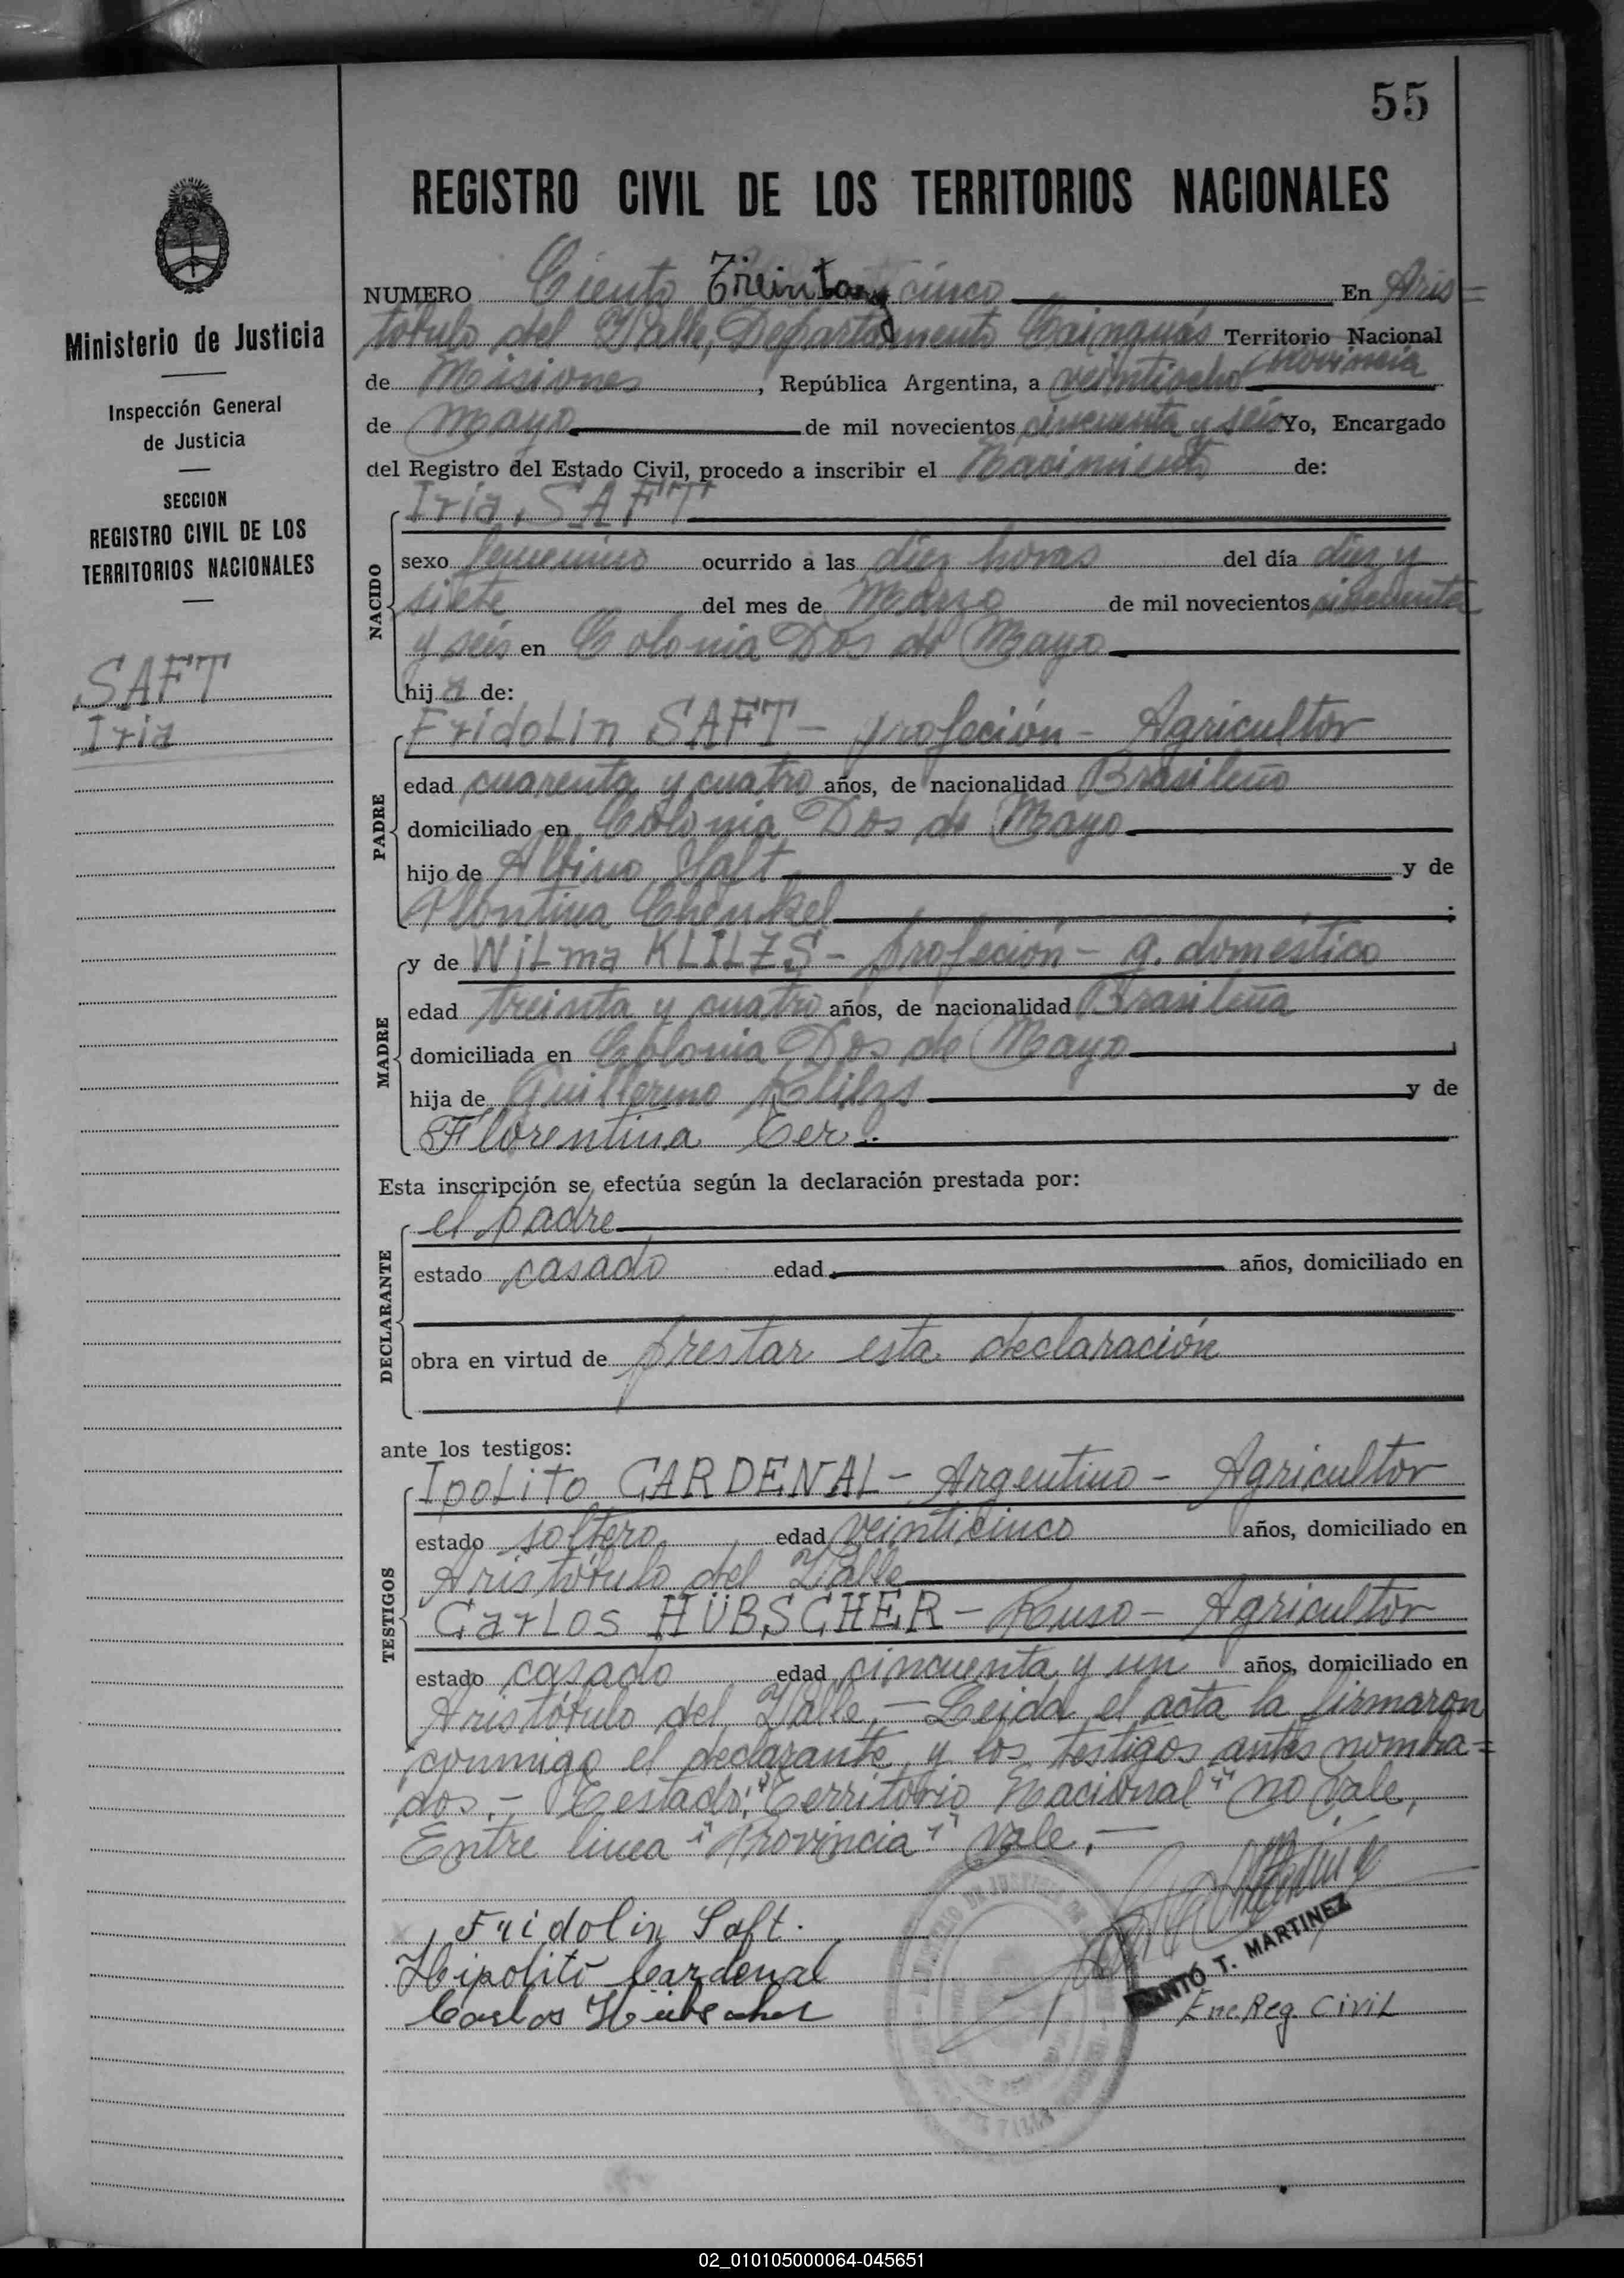 55
REGISTRO CIVIL DE LOS TERRITORIOS NACIONALES
Ministerio de Justicia
Inspección General
de Justicia
SECCION
REGISTRO CIVIL DE LOS
TERRITORIOS NACIONALES
SAFT
Iria
NUMERO Ciento Treinta y cinco En Aris=
tóbulo del Valle, Departamento Cainguás Territorio Nacional
Provincia
de Misiones, República Argentina, a veintiocho
de Mayo de mil novecientos cincuenta y seis Yo, Encargado
del Registro del Estado Civil, procedo a inscribir el Nacimiento de:
NACIDO
Iria SAFT
sexo femenino ocurrido a las diez horas del día diez y
siete del mes de Marzo de mil novecientos cincuenta
y seis en Colonia Dos de Mayo
hija de:
PADRE
Fridolin SAFT - profeción - Agricultor
edad cuarenta y cuatro años, de nacionalidad Brasileño
domiciliado en Colonia Dos de Mayo
hijo de Albino Saft y de
MADRE
y de Wilma KLILZS - profeción - q. doméstico
edad treinta y cuatro años, de nacionalidad Brasileña
domiciliada en Colonia Dos de Mayo
hija de Guillermo Klilzs y de
Florentina Cer.
Esta inscripción se efectúa según la declaración prestada por:
DECLARANTE
el padre
estado casado edad años, domiciliado en
obra en virtud de prestar esta declaración
ante los testigos:
TESTIGOS
Ipolito CARDENAL - Argentino - Agricultor
estado soltero edad veinticinco años, domiciliado en
Aristóbulo del Valle
Carlos HÜBSCHER - Ruso - Agricultor
estado casado edad cincuenta y un años, domiciliado en
Aristóbulo del Valle.- Leida el acta la firmaron
conmigo el declarante y los testigos antes nombra=
dos.- Testado: "Territorio Nacional" no vale,
Entre linea "Provincia" vale.-
Fridolin Saft.
Hipolito Cardenal
Carlos Hübscher
T. MARTINEZ
Enc. Reg. Civil
02_010105000064-045651